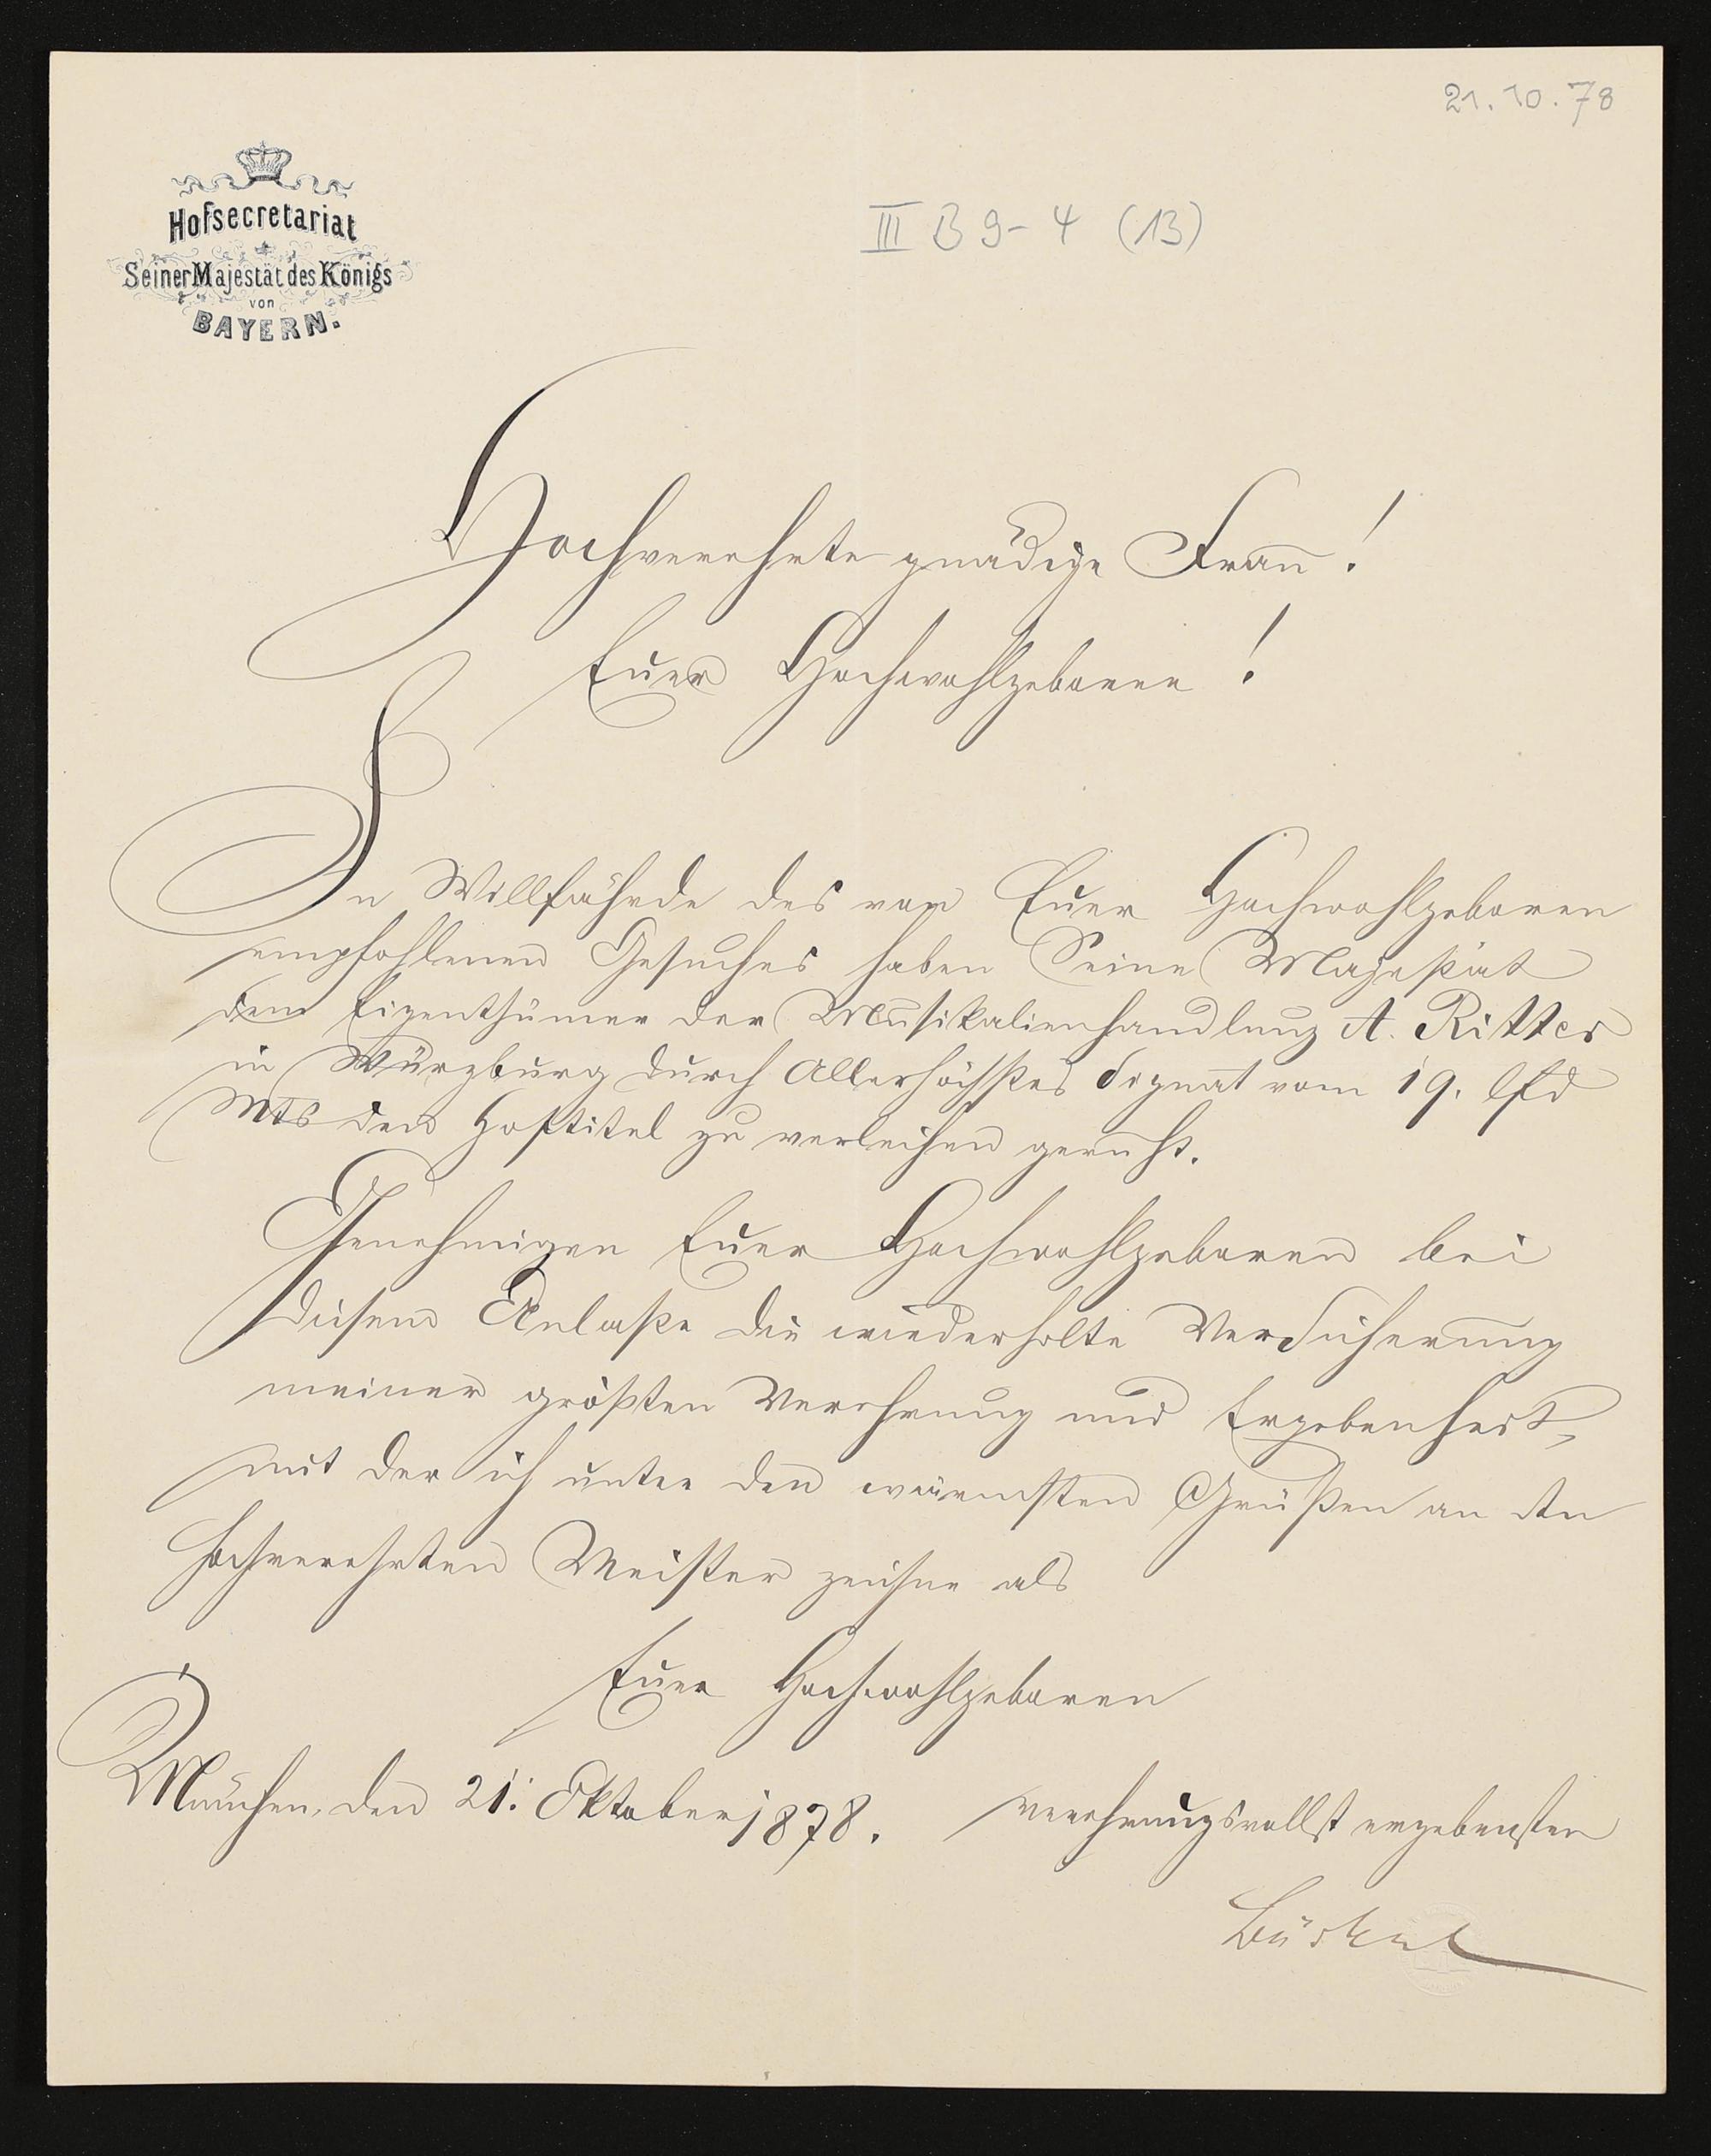 21.10.78
III B 9-4 (13)
Hofsecretariat
Seiner Majestät des Königs
von
BAYERN.
Hochverehrte gnädige Frau!
Euer Hochwohlgeboren!
In Willfährde des von Euer Hochwohlgeboren
empfohlenen Gesuches haben Seine Majestät
dem Eigenthümer der Musikalienhandlung A. Ritter
in Würzburg durch Allerhöchstes Signat vom 19. lfd
Mts den Hoftitel zu verleihen geruht.
Genehmigen Euer Hochwohlgeboren bei
diesem Anlaße die wiederholte Versicherung
meiner größten Verehrung und Ergebenheit,
mit der ich unter den wärmsten Grüßen an den
hochverehrten Meister zeichne als
Euer Hochwohlgeboren
München, den 21. Oktober 1878.
verehrungsvollst ergebenster
Bürkel